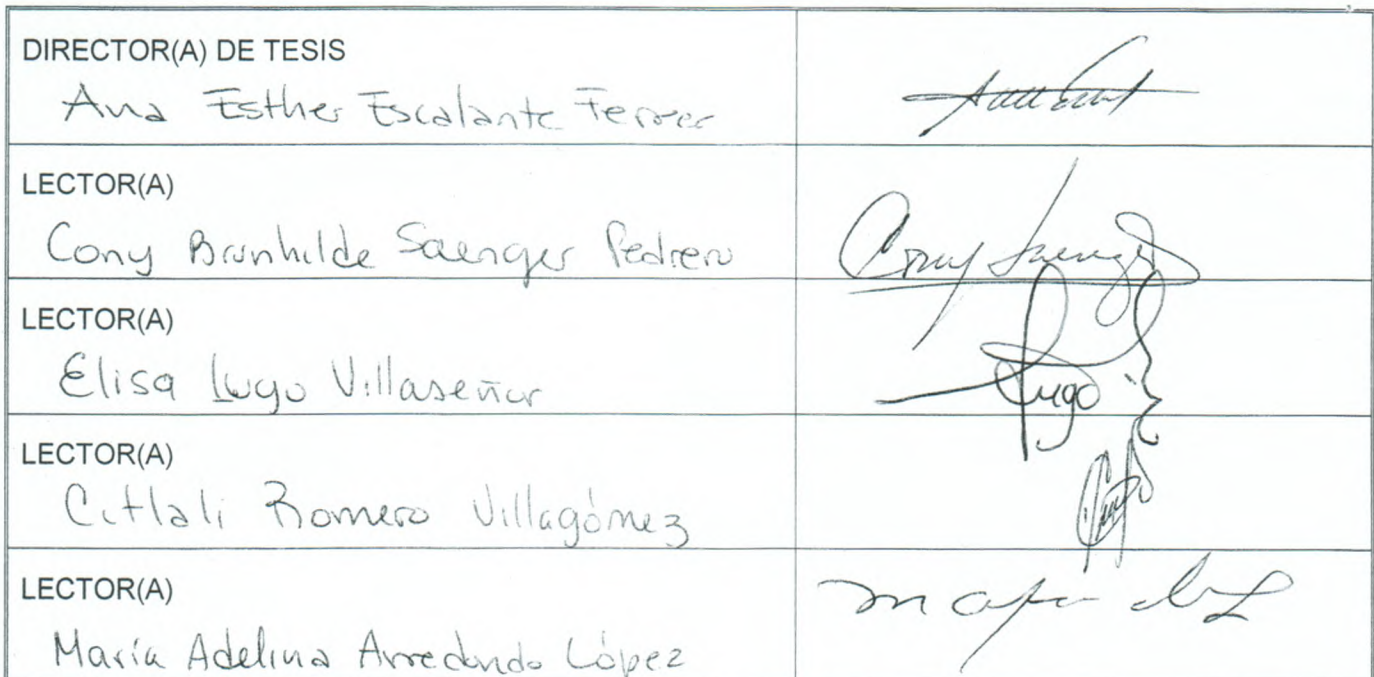 DIRECTOR(A) DE TESIS
Ana Esther Escalante Ferrer
LECTOR(A)
Cony Brunhilde Saenger Pedrero
Cony Saenger
LECTOR(A)
Elisa Lugo Villaseñor
Lugo
LECTOR(A)
Citlali Romero Villagómez
LECTOR(A)
María Adelina Arredondo López